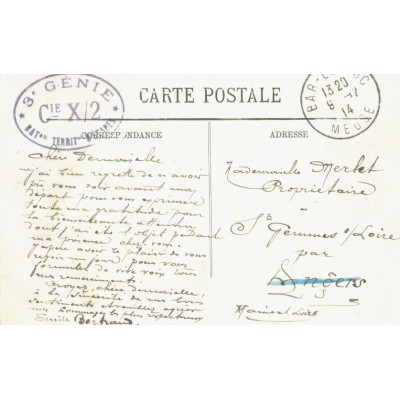 3e GÉNIE
Cie X/2
BATon TERRIT
BAR-LE-DUC
13 20
14
MEUSE
CARTE POSTALE
CORRESPONDANCE
ADRESSE
Chère Demoiselle
j'ai bien regretté de n'avoir
pu vous voir avant mon
départ pour vous exprimer
toute ma gratitude pour
la bienveillante attention
dont j'ai été l'objet pendant
ma présence chez vous.
J'espère avoir le plaisir de vous
revoir un jour pour vous
formuler de vive voix tous
mes remerciements.
Croyez, chère demoiselle,
à la sincérité de mes bons
sentiments et veuillez agréer
mes hommages les plus respectueux
Emile Bertrand
Mademoiselle Merlet
Propriétaire
à
Ste Gemmes s/Loire
par
Angers
Maine et Loire